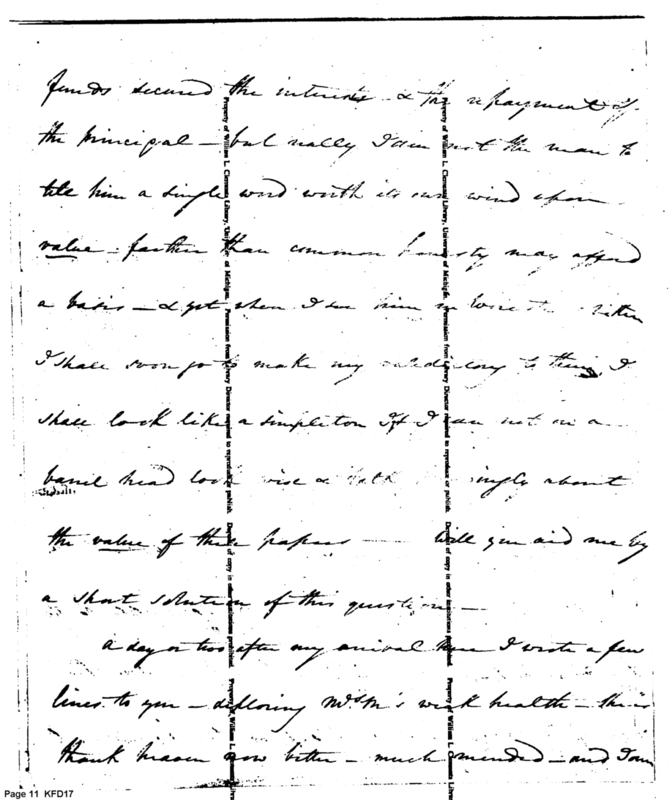 funds secured the interest & the repayment of
the principal – but really I am not the man to
tell him a single word worth its own wind upon
value – farther than common honesty may afford
a basis – & yet when I see him in
I shall soon go to make my valedictory to them, I
shall look like a simpleton If I can not in a
barrel head look wise & talk about
the value of these papers — Will you aid me by
a short solution of this question –
A day or two after my arrival here I wrote a few
lines to you – deploring Mrs M's weak health – she is
thank heaven now better – much mended – and I am
Property of William L. Clements Library, University of Michigan. Permission from Library Director needed to reproduce or publish. Deposit of copy in other institutions prohibited.
Property of William L. Clements Library, University of Michigan. Permission from Library Director needed to reproduce or publish. Deposit of copy in other institutions prohibited.
Page 11 KFD17